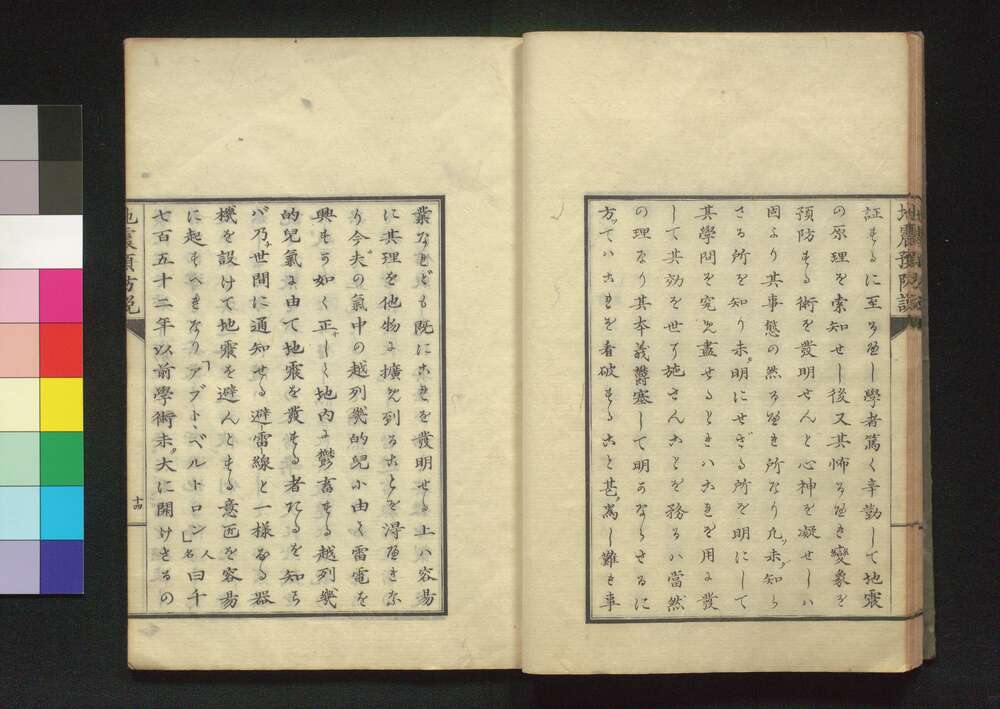 地震預防説
証するに至るべし學者篤く辛勤して地震
の原理を索知せし後又其怖るべき變象を
預防する術を發明せんと心神を凝せしハ
固より其事態の然るべき所なり凡未知ら
ざる所を知り未明にせざる所を明にして
其學問を究め盡せるときハ古を用ゐ發
して其功を世に施さんことを務るハ當然
の理なり其本義欝塞して明ならざるに
方てハこれを看破すること甚為し難き事
業なれども既にこれを發明せる上ハ容易
に其理を他物に擴め列ることを得べきな
り今夫の氣中の越列幾的兒に由て雷電を
興すが如く正しく地内に鬱畜する越列幾
的兒氣に由て地震を發する者たるを知ら
バ乃世間に通知せる避雷線と一様なる器
機を設けて地震を避んとする意匠を容易
に起すべきなり「アブト、ベルトロン」人名曰千
七百五十二年以前學術未大に開けざるの
地震預防説
十四